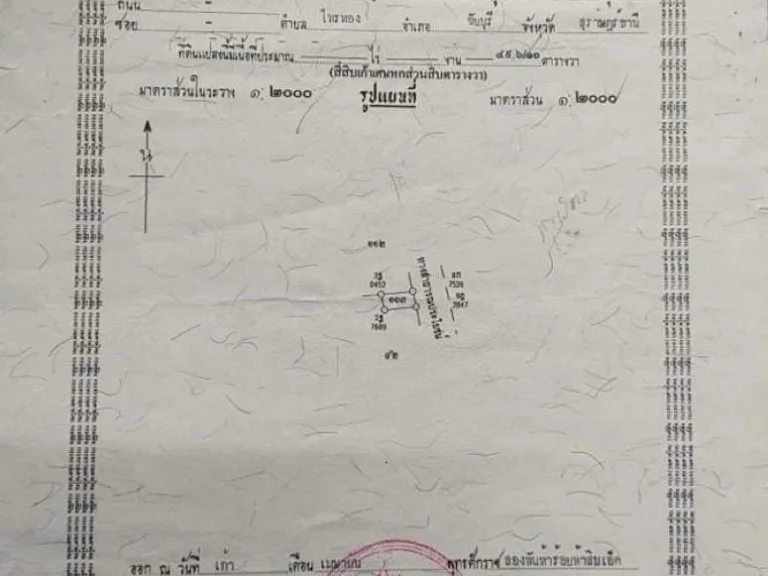 ถนน -
ซอย - ตำบล ไทรทอง อำเภอ ชัยบุรี จังหวัด สุราษฎร์ธานี
ที่ดินแปลงนี้มีเนื้อที่ประมาณ - ไร่ - งาน ๔๙ ๖/๑๐ ตารางวา
(สี่สิบเก้าเศษหกส่วนสิบตารางวา)
มาตราส่วนในระวาง ๑: ๒๐๐๐ รูปแผนที่ มาตราส่วน ๑: ๒๐๐๐
น
๑๑๒
0452
๑๑๓
7609
ทางสาธารณประโยชน์
7526
7647
๔๒
ออก ณ วันที่ เก้า เดือน เมษายน พุทธศักราช สองพันห้าร้อยห้าสิบเอ็ด